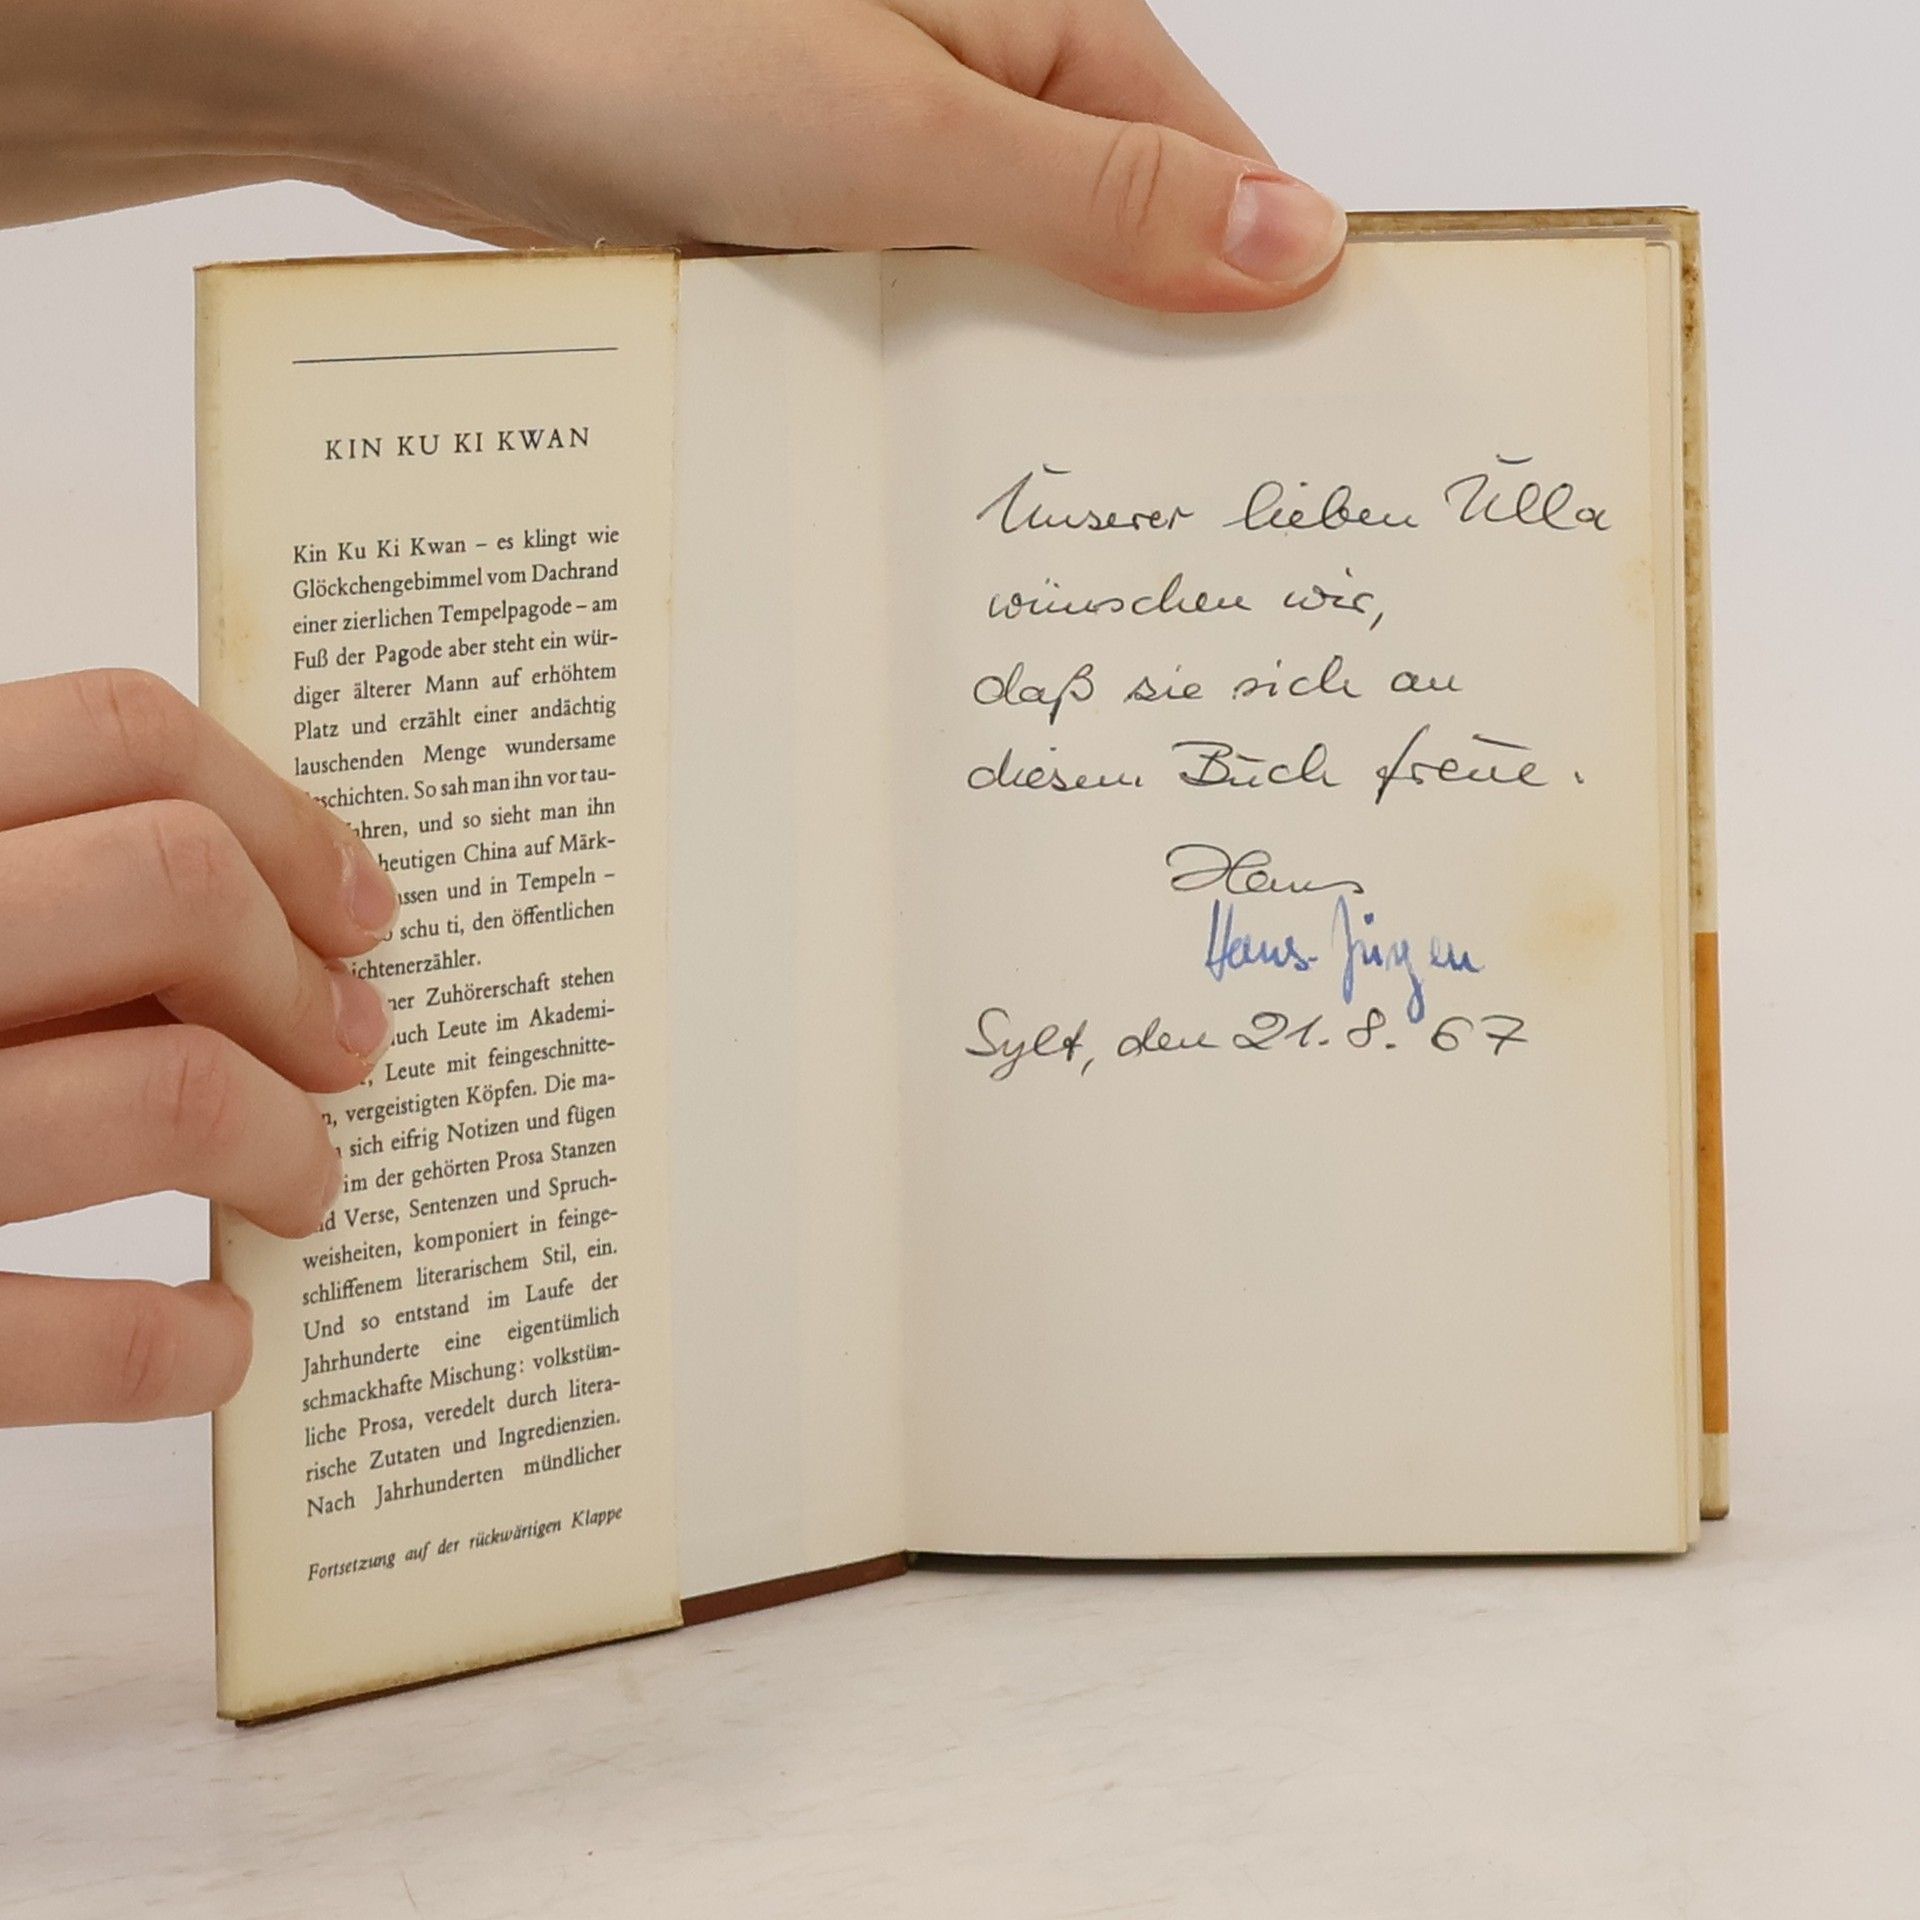 KIN KU KI KWAN
Kin Ku Ki Kwan – es klingt wie
Glöckchengebimmel vom Dachrand
einer zierlichen Tempelpagode – am
Fuß der Pagode aber steht ein wür-
diger älterer Mann auf erhöhtem
Platz und erzählt einer andächtig
lauschenden Menge wundersame
schichten. So sah man ihn vor tau-
ahren, und so sieht man ihn
heutigen China auf Märk-
assen und in Tempeln –
schu ti, den öffentlichen
ichtenerzähler.
ner Zuhörerschaft stehen
uch Leute im Akademi-
, Leute mit feingeschnitte-
n, vergeistigten Köpfen. Die ma-
sich eifrig Notizen und fügen
im der gehörten Prosa Stanzen
d Verse, Sentenzen und Spruch-
weisheiten, komponiert in feinge-
schliffenem literarischem Stil, ein.
Und so entstand im Laufe der
Jahrhunderte eine eigentümlich
schmackhafte Mischung: volkstüm-
liche Prosa, veredelt durch litera-
rische Zutaten und Ingredienzien.
Nach Jahrhunderten mündlicher
Fortsetzung auf der rückwärtigen Klappe
Unserer lieben Ulla
wünschen wir,
daß sie sich an
diesem Buch freue.
Hans
Hans-Jürgen
Sylt, den 21. 8. 67